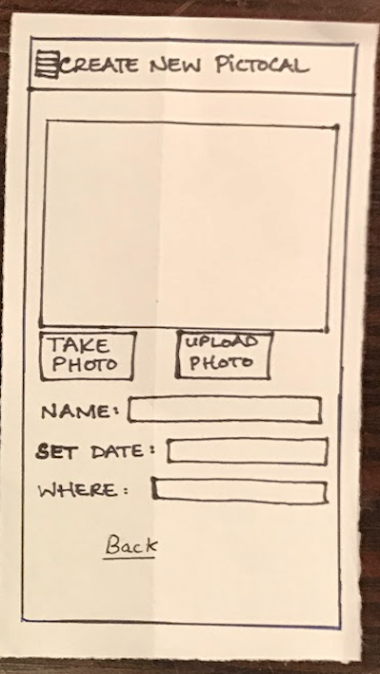 CREATE NEW PICTOCAL
TAKE PHOTO
UPLOAD PHOTO
NAME:
SET DATE:
WHERE:
Back